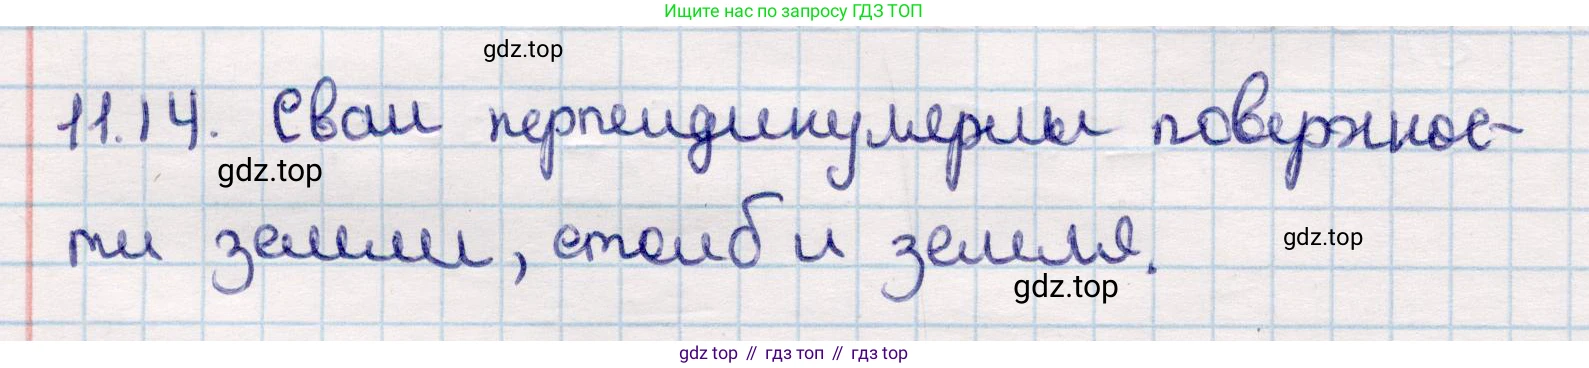 Ищите нас по запросу ГДЗ ТОП
gdz.top
11.14. Сваи перпендикулярны поверхнос-
gdz.top
ти земли, столб и земля.
gdz.top
gdz.top
gdz top // гдз топ // гдз top